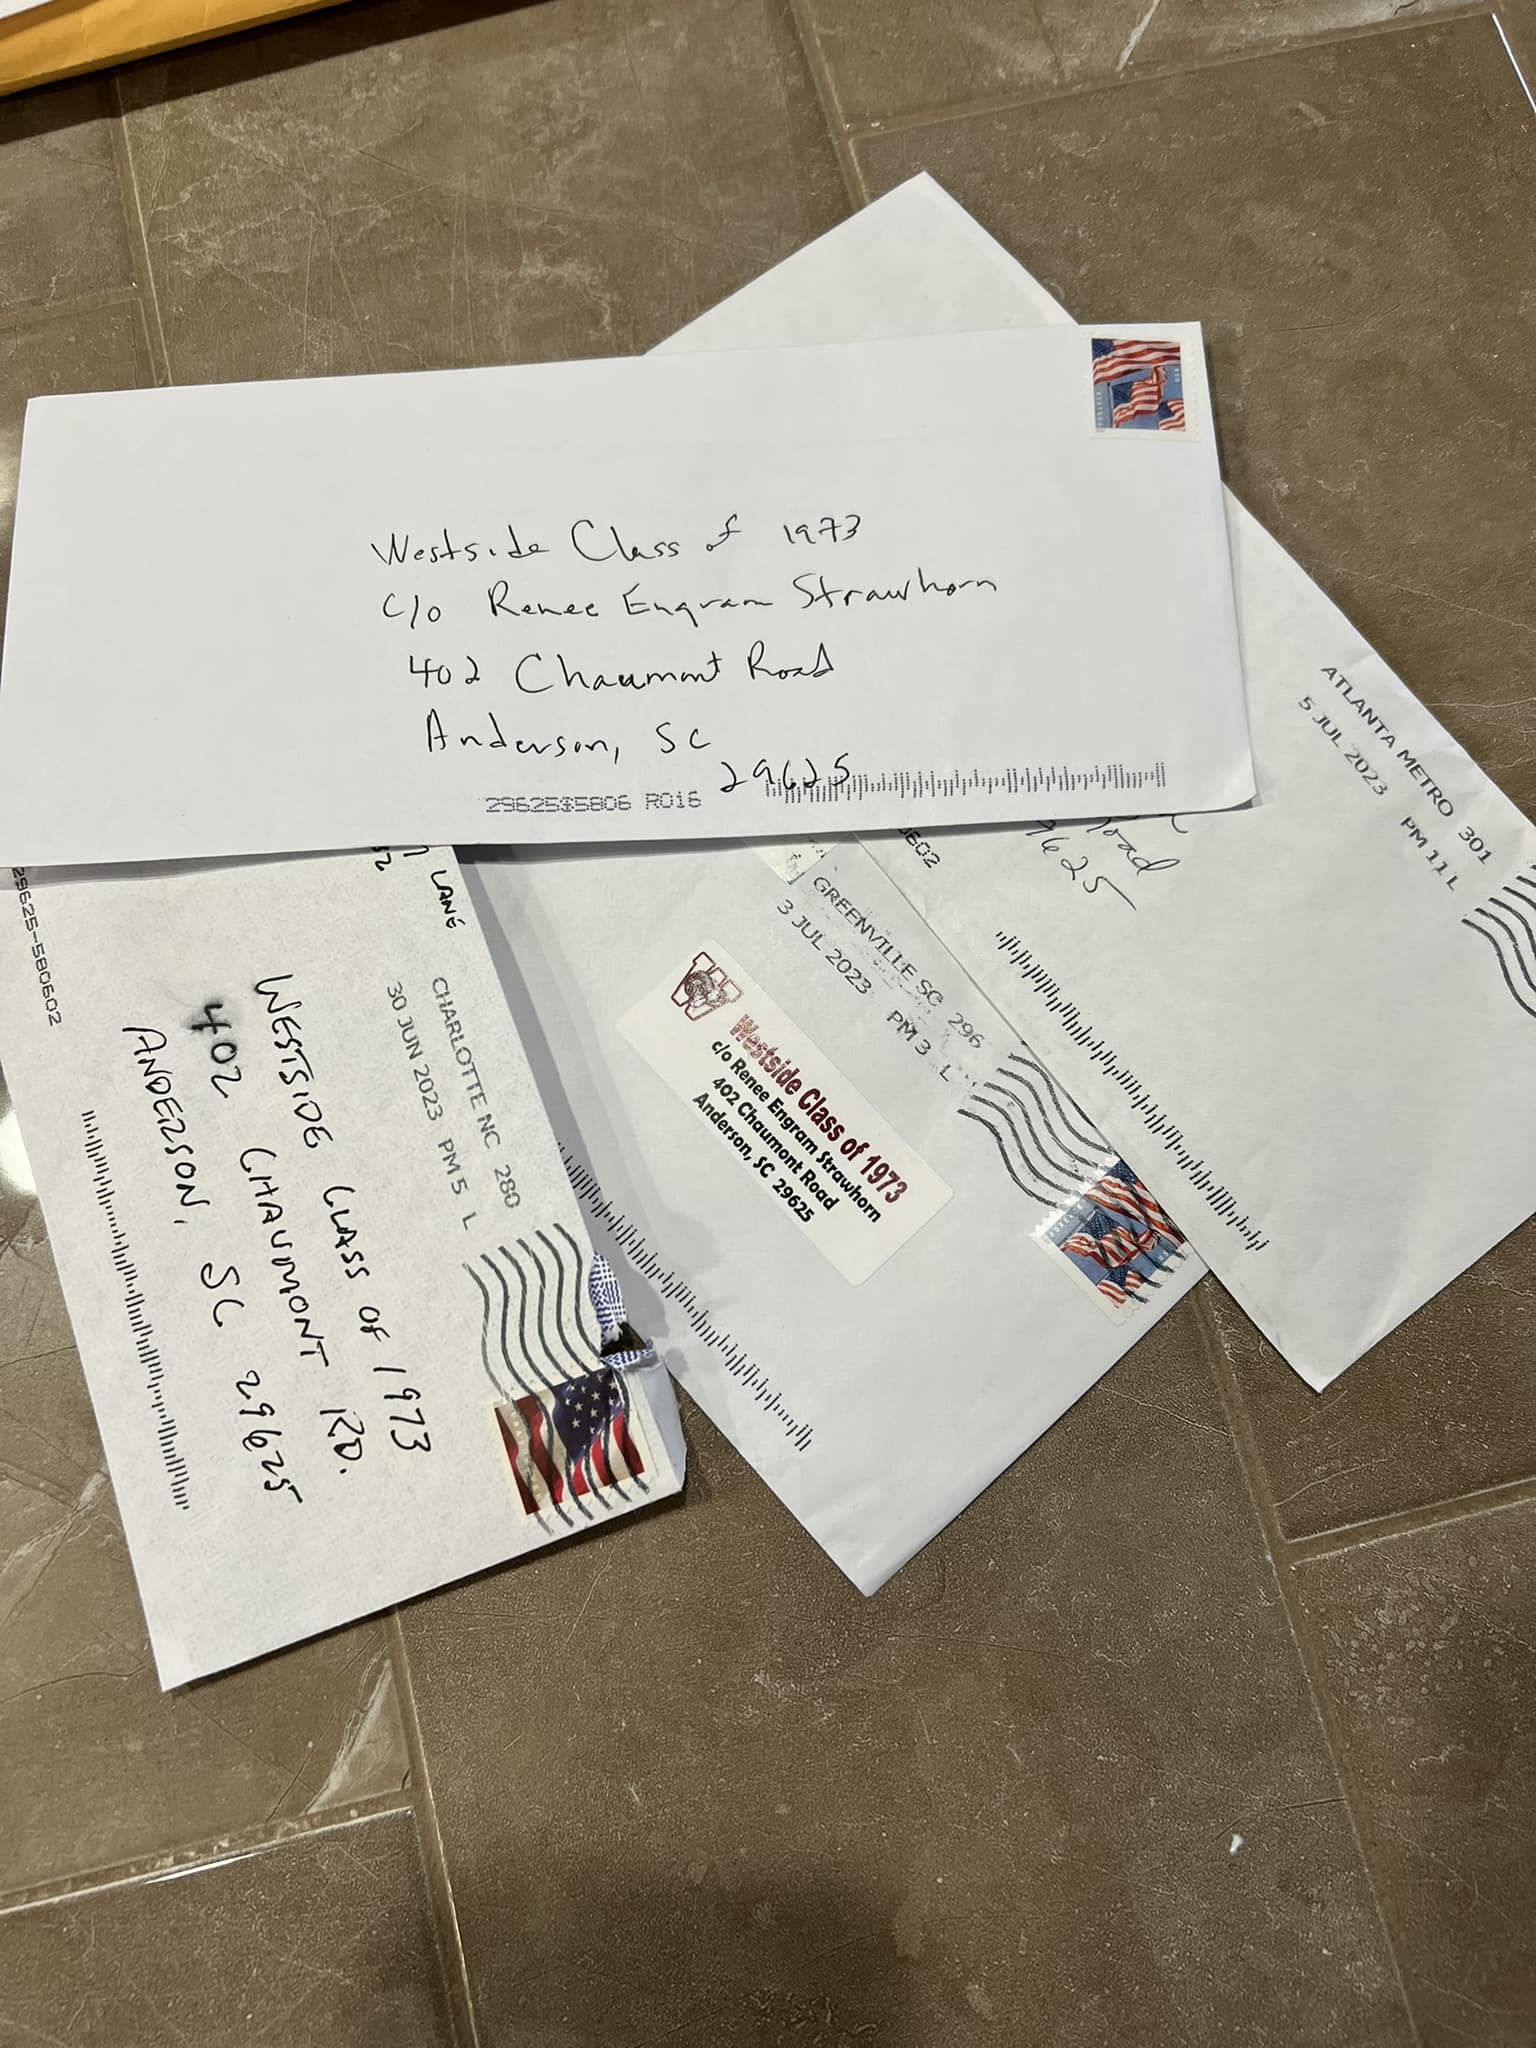 Westside Class of 1973
c/o Renee Engram Strawhorn
402 Chaumont Road
Anderson, SC
29625
29625$5806 R016
ATLANTA METRO 301
5 JUL 2023 PM 11 L
Road
9625
GREENVILLE SC 296
3 JUL 2023 PM 3 L
W
Westside Class of 1973
c/o Renee Engram Strawhorn
402 Chaumont Road
Anderson, SC 29625
LANE
CHARLOTTE NC 280
30 JUN 2023 PM 5 L
WESTSIDE CLASS OF 1973
402 CHAUMONT RD.
ANDERSON, SC 29625
29625-580602